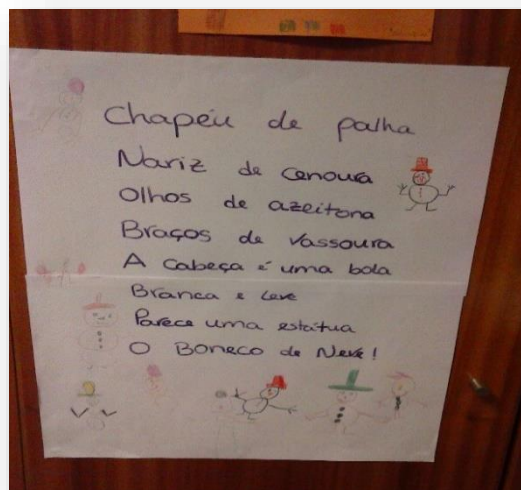 Chapéu de palha
Nariz de cenoura
Olhos de azeitona
Braços de vassoura
A cabeça é uma bola
Branca e leve
Parece uma estátua
O Boneco de Neve!